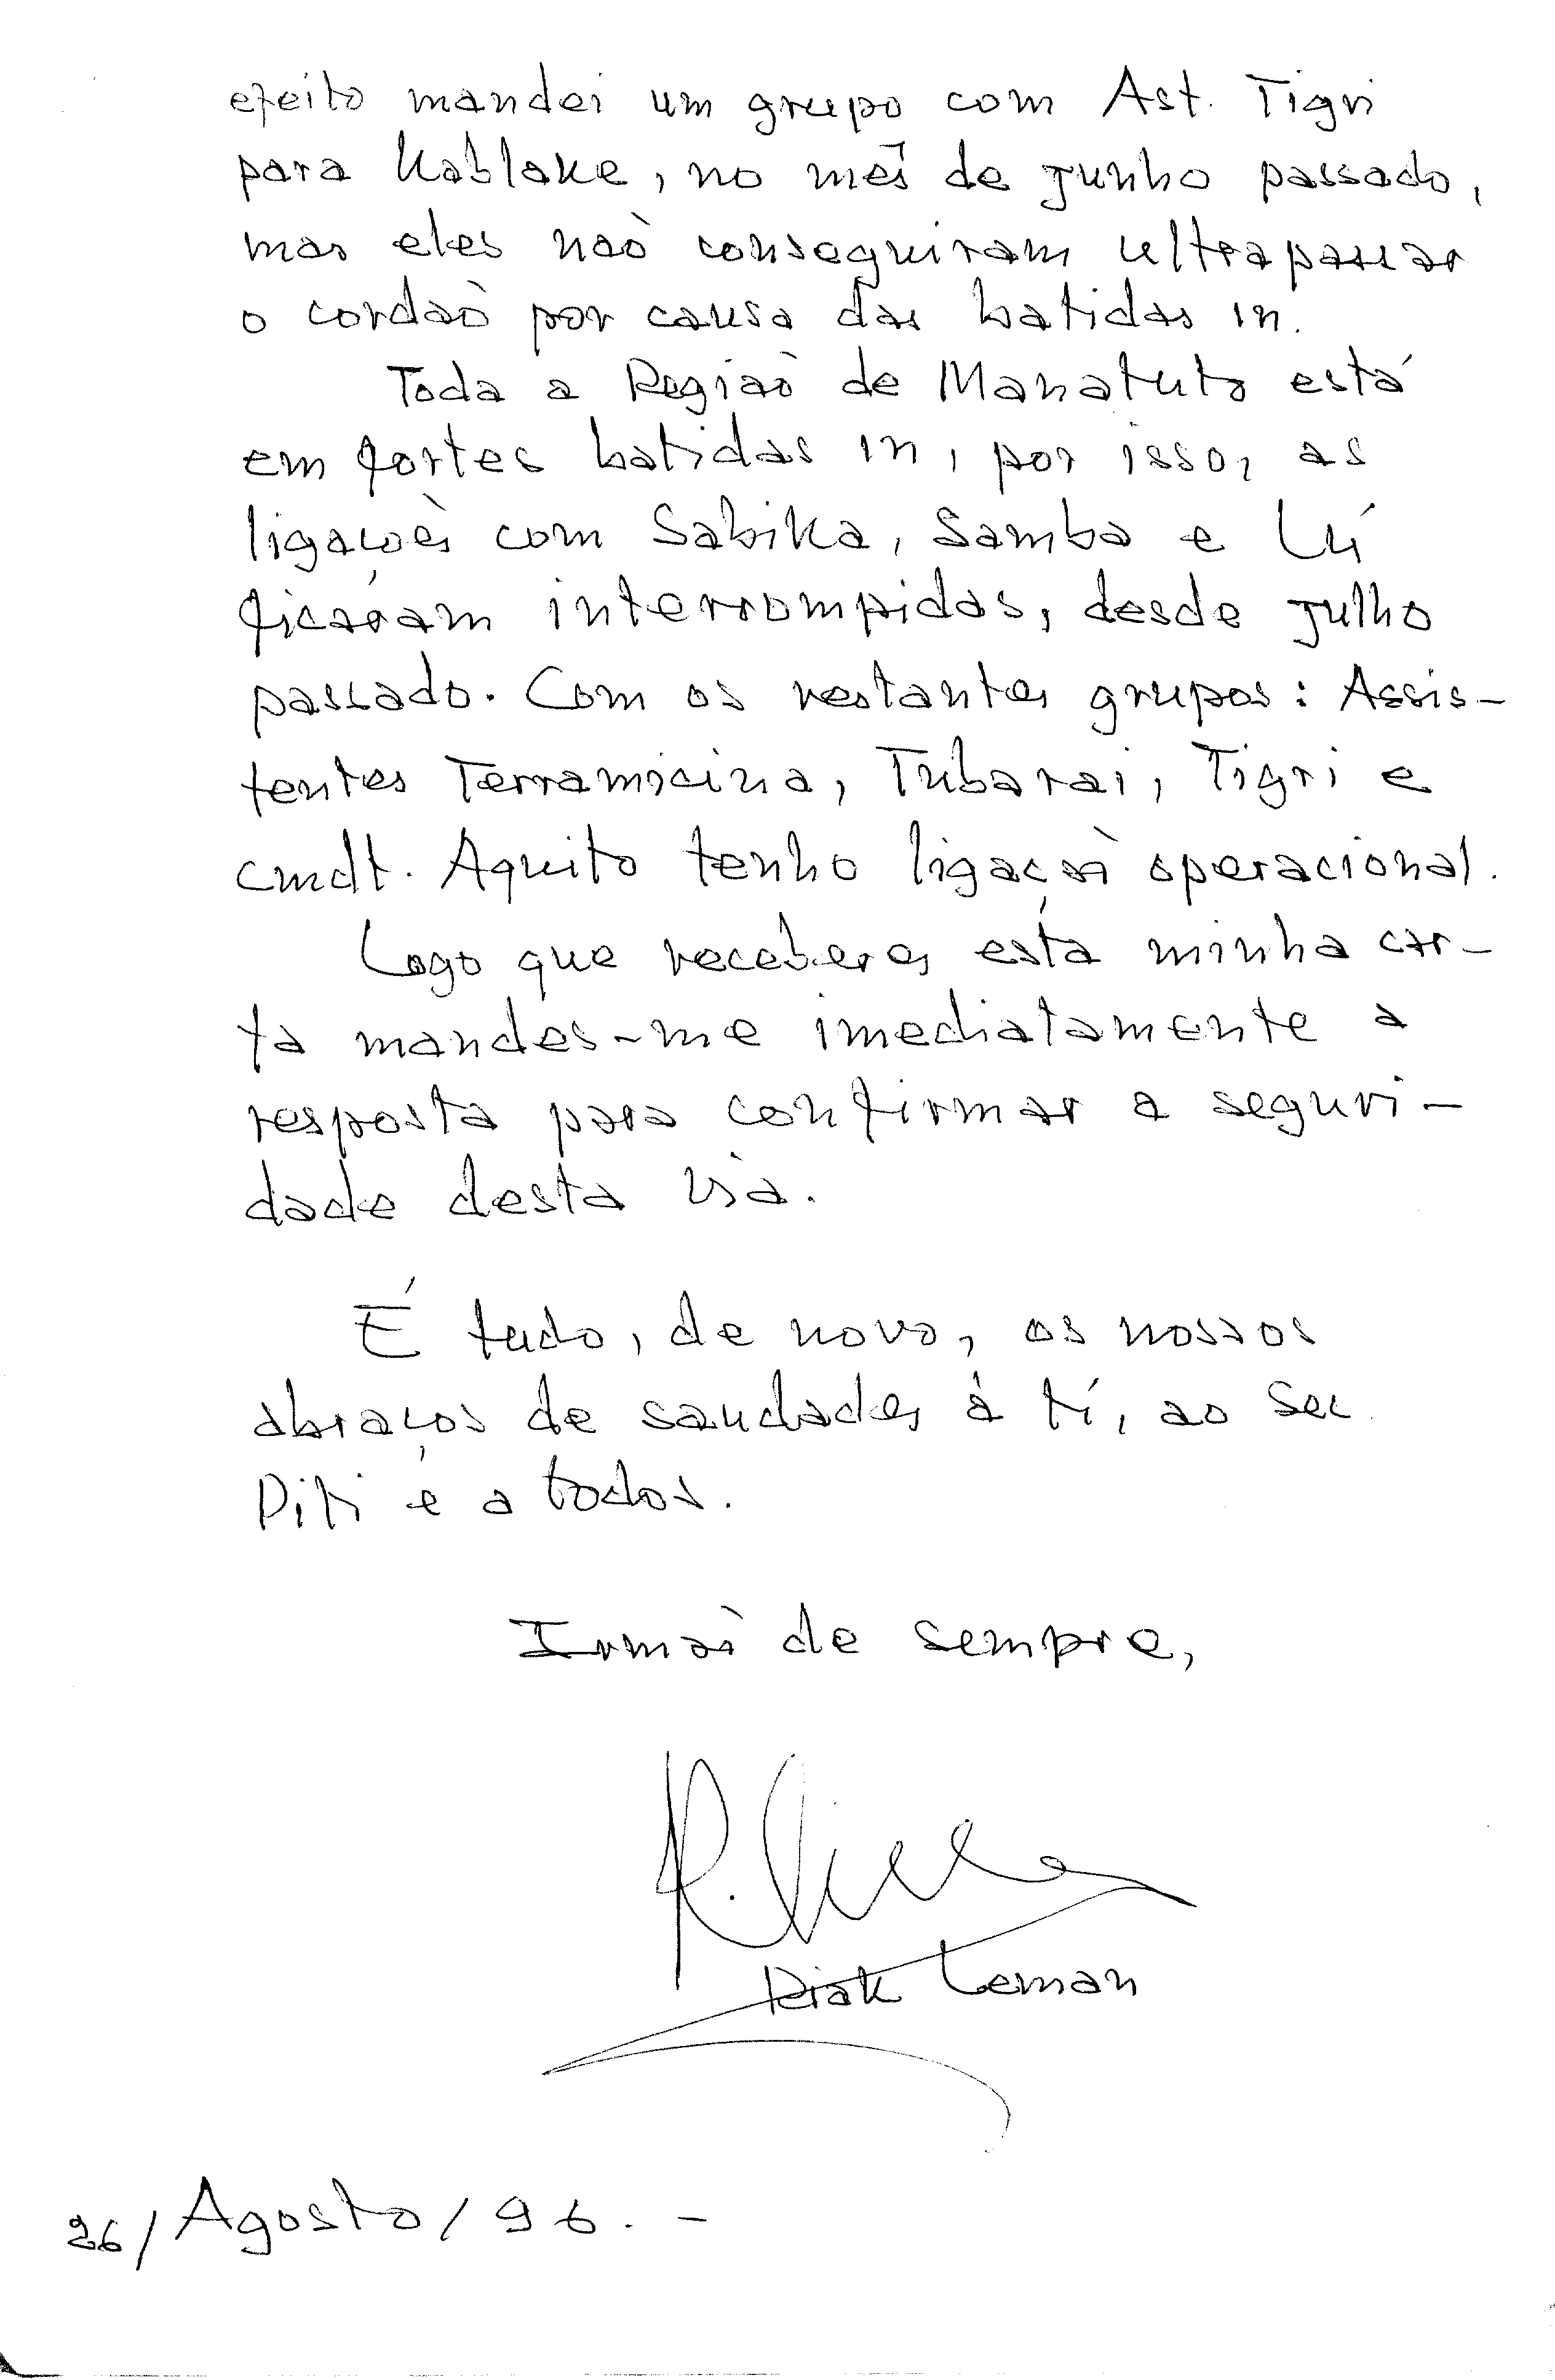 efeito mandei um grupo com Ast. Tigri
para Kablake, no mês de Junho passado,
mas eles não conseguiram ultrapassar
o cordão por causa das batidas in.
Toda a Região de Manatuto está
em fortes batidas in, por isso, as
ligações com Sabika, Samba e Lú
ficaram interrompidas, desde Julho
passado. Com os restantes grupos: Assis-
tentes Terramicina, Tubarai, Tigri e
cmdt. Aquito tenho ligação operacional.
Logo que receberes esta minha car-
ta mandes-me imediatamente a
resposta para confirmar a seguri-
dade desta via.
É tudo, de novo, os nossos
abraços de saudades à tí, ao Sec.
Piti e a todos.
Irmão de sempre,
Riak Leman
26/Agosto/96.-